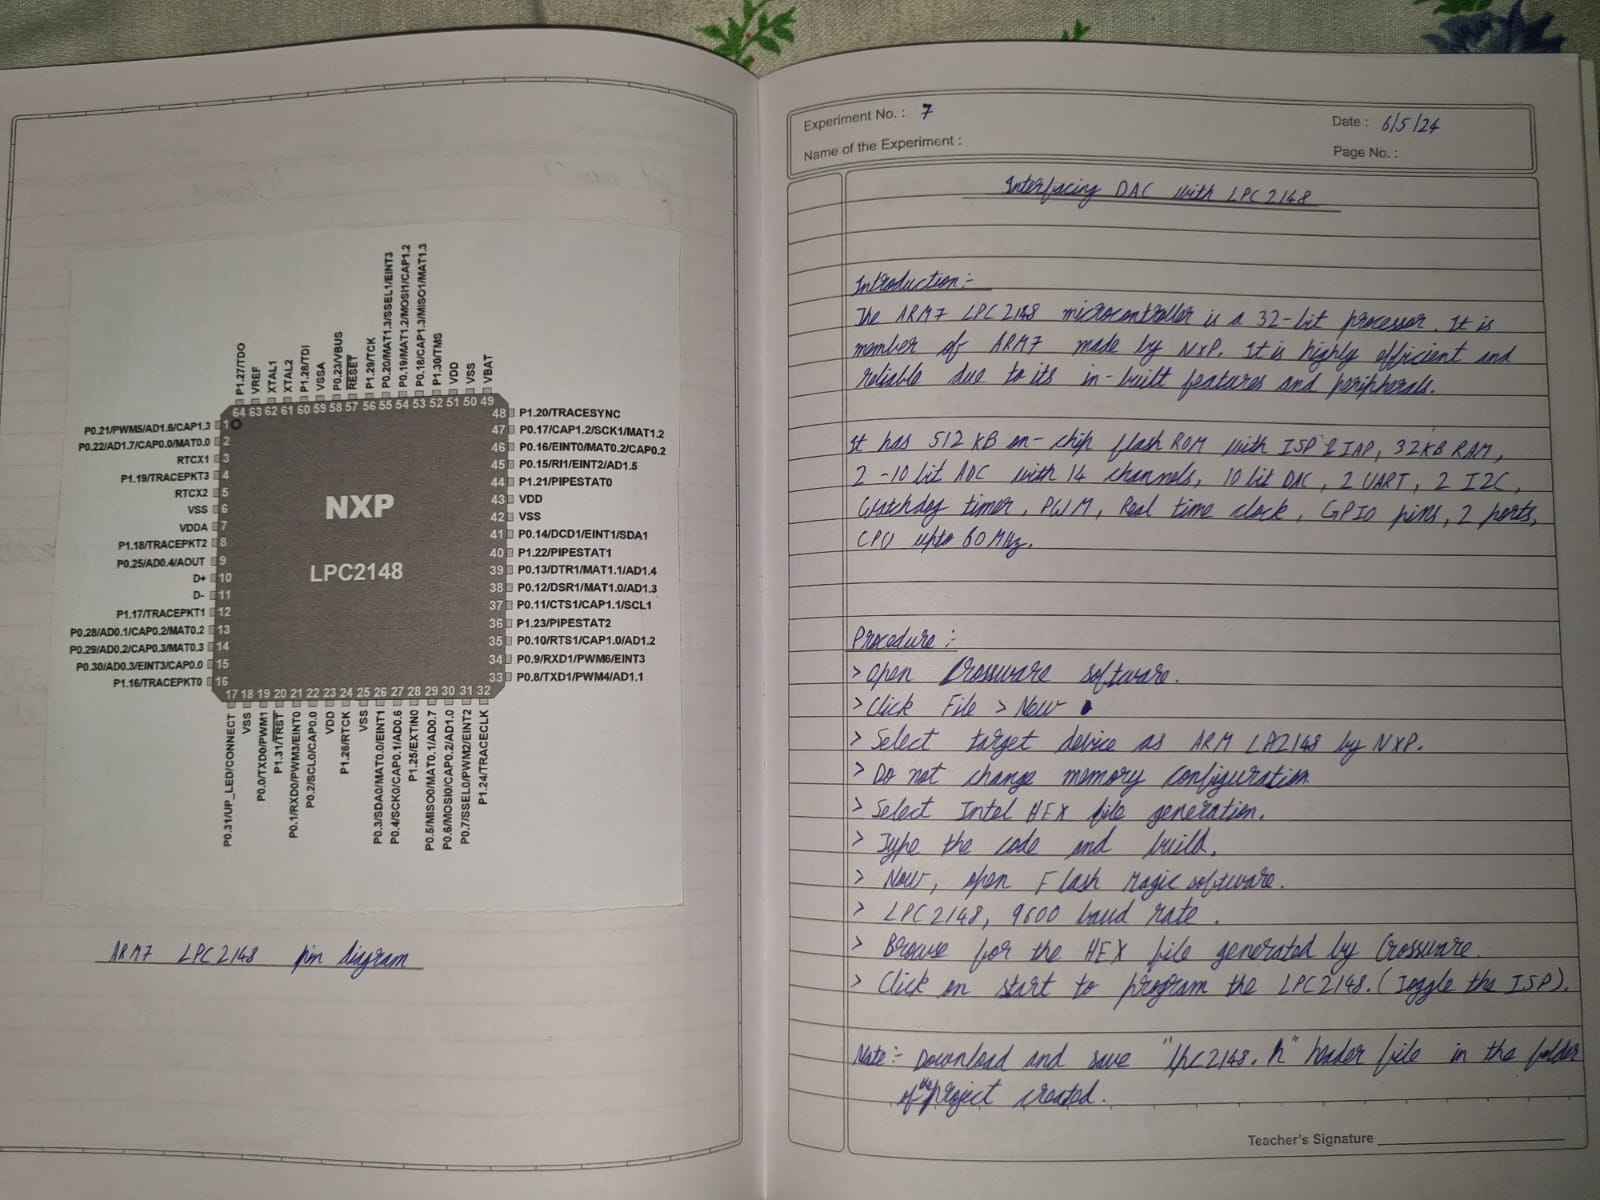 P1.27/TDO
VREF
XTAL1
XTAL2
P1.28/TDI
VSSA
P0.23/VBUS
RESET
P1.29/TCK
P0.20/MAT1.3/SSEL1/EINT3
P0.19/MAT1.2/MOSI1/CAP1.2
P0.18/CAP1.3/MISO1/MAT1.3
P1.30/TMS
VDD
VSS
VBAT
64 63 62 61 60 59 58 57 56 55 54 53 52 51 50 49
P0.21/PWM5/AD1.6/CAP1.3 1
P0.22/AD1.7/CAP0.0/MAT0.0 2
RTCX1 3
P1.19/TRACEPKT3 4
RTCX2 5
VSS 6
VDDA 7
P1.18/TRACEPKT2 8
P0.25/AD0.4/AOUT 9
D+ 10
D- 11
P1.17/TRACEPKT1 12
P0.28/AD0.1/CAP0.2/MAT0.2 13
P0.29/AD0.2/CAP0.3/MAT0.3 14
P0.30/AD0.3/EINT3/CAP0.0 15
P1.16/TRACEPKT0 16
NXP
LPC2148
48 P1.20/TRACESYNC
47 P0.17/CAP1.2/SCK1/MAT1.2
46 P0.16/EINT0/MAT0.2/CAP0.2
45 P0.15/RI1/EINT2/AD1.5
44 P1.21/PIPESTAT0
43 VDD
42 VSS
41 P0.14/DCD1/EINT1/SDA1
40 P1.22/PIPESTAT1
39 P0.13/DTR1/MAT1.1/AD1.4
38 P0.12/DSR1/MAT1.0/AD1.3
37 P0.11/CTS1/CAP1.1/SCL1
36 P1.23/PIPESTAT2
35 P0.10/RTS1/CAP1.0/AD1.2
34 P0.9/RXD1/PWM6/EINT3
33 P0.8/TXD1/PWM4/AD1.1
17 18 19 20 21 22 23 24 25 26 27 28 29 30 31 32
P0.31/UP_LED/CONNECT
VSS
P0.0/TXD0/PWM1
P1.31/TRST
P0.1/RXD0/PWM3/EINT0
P0.2/SCL0/CAP0.0
VDD
P1.26/RTCK
VSS
P0.3/SDA0/MAT0.0/EINT1
P0.4/SCK0/CAP0.1/AD0.6
P1.25/EXTIN0
P0.5/MISO0/MAT0.1/AD0.7
P0.6/MOSI0/CAP0.2/AD1.0
P0.7/SSEL0/PWM2/EINT2
P1.24/TRACECLK
ARM7 LPC2148 pin diagram
Experiment No. : 7
Date : 6/5/24
Name of the Experiment :
Page No. :
Interfacing DAC with LPC2148
Introduction:-
The ARM7 LPC2148 microcontroller is a 32-bit processor. It is
member of ARM7 made by NXP. It is highly efficient and
reliable due to its in-built features and peripherals.
It has 512 KB on-chip flash ROM with ISP & IAP, 32KB RAM,
2 -10 bit ADC with 14 channels, 10 bit DAC, 2 UART, 2 I2C,
Watchdog timer, PWM, Real time clock, GPIO pins, 2 ports,
CPU upto 60MHz.
Procedure :-
> Open Crossware software.
> Click File > New
> Select target device as ARM LP2148 by NXP.
> Do not change memory configuration
> Select Intel HEX file generation.
> Type the code and build.
> Now, open Flash Magic software.
> LPC2148, 9600 baud rate.
> Browse for the HEX file generated by Crossware.
> Click on start to program the LPC2148. (Toggle the ISP).
Note:- Download and save "lpc2148.h" header file in the folder
of the project created.
Teacher's Signature